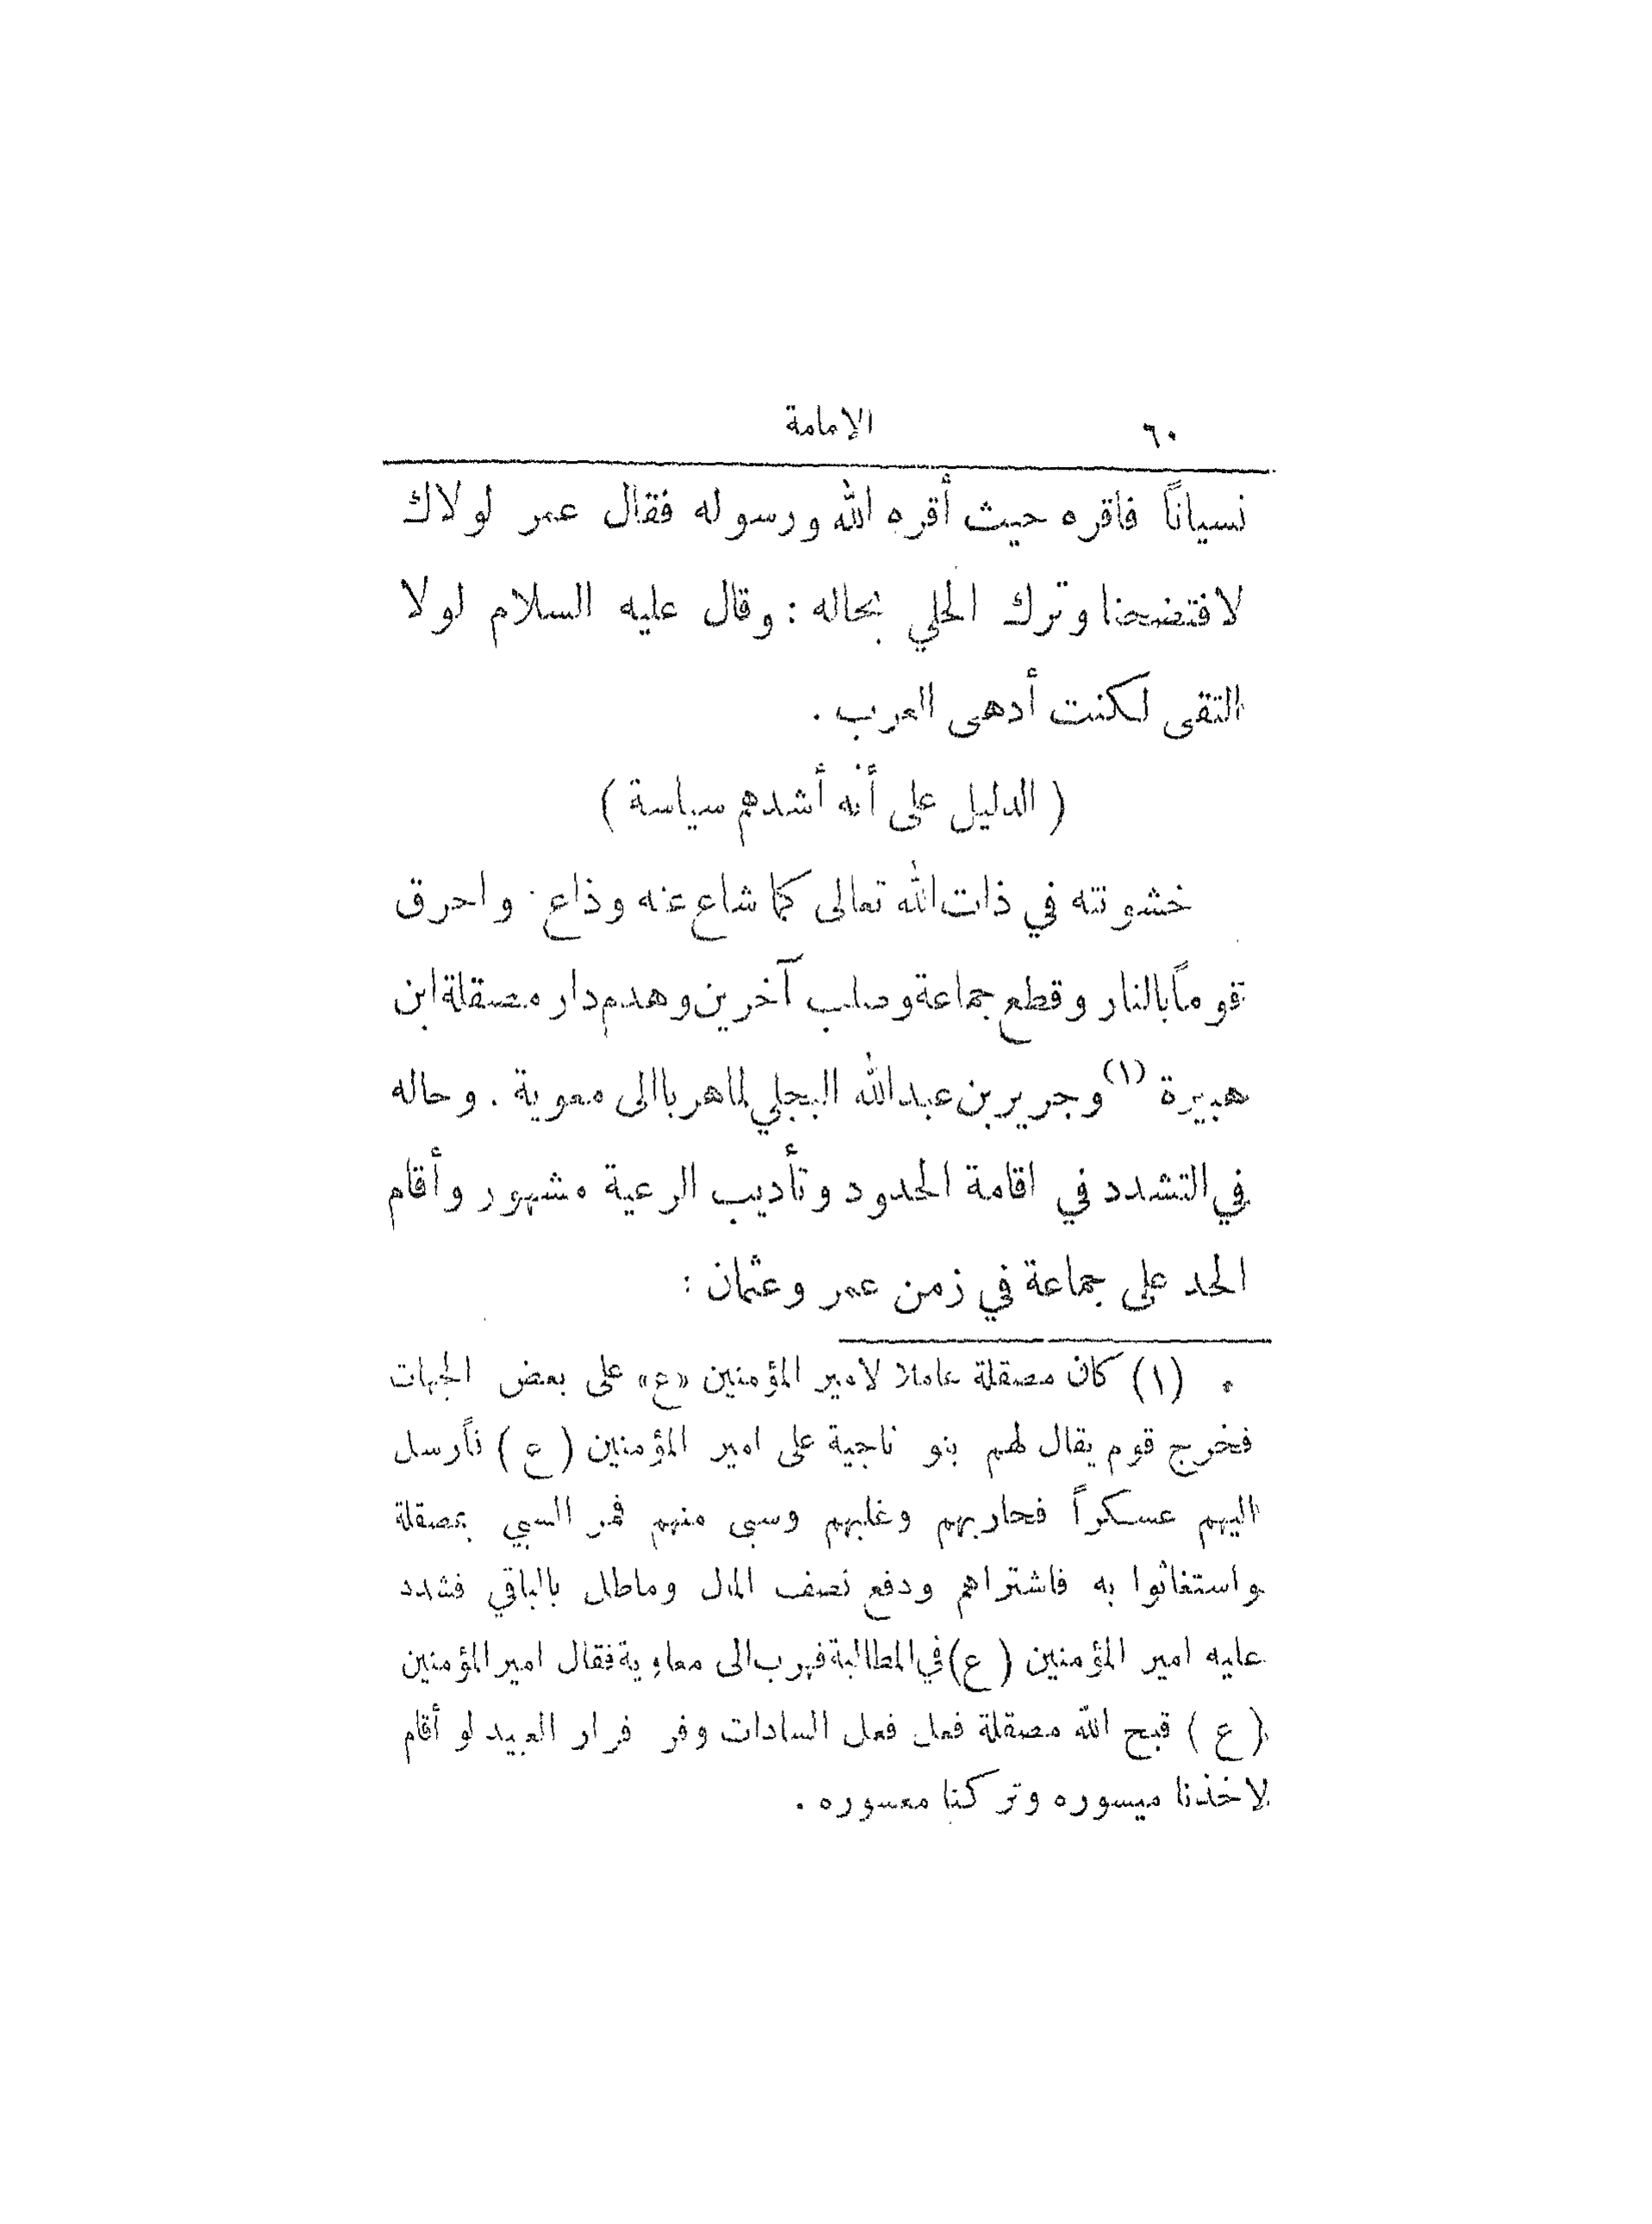 ٦٠ الامامة
نسياناً فاقره حيث أقره الله ورسوله فقال عمر لولاك
لافتضحنا وترك الحلي بحاله : وقال عليه السلام لولا
التقى لكنت أدهى العرب .
( الدليل على أنه أشدهم سياسة )
خشونته في ذات الله تعالى كما شاع عنه وذاع . واحرق
قوماً بالنار وقطع جماعة وصلب آخرين وهدم دار مصقلة ابن
هبيرة (١) وجرير بن عبد الله البجلي لما هربا الى معوية . وحاله
في التشدد في اقامة الحدود وتأديب الرعية مشهور وأقام
الحد على جماعة في زمن عمر وعثمان :
(١) كان مصقلة عاملا لامير المؤمنين «ع» على بعض الجهات
فخرج قوم يقال لهم بنو ناجية على امير المؤمنين ( ع ) فأرسل
اليهم عسكراً فحاربهم وغلبهم وسبى منهم فمر السبي بمصقلة
واستغاثوا به فاشتراهم ودفع نصف المال وماطل بالباقي فشدد
عليه امير المؤمنين ( ع ) في المطالبة فهرب الى معاوية فقال امير المؤمنين
( ع ) قبح الله مصقلة فعل فعل السادات وفر فرار العبيد لو أقام
لاخذنا ميسوره وتركنا معسوره .